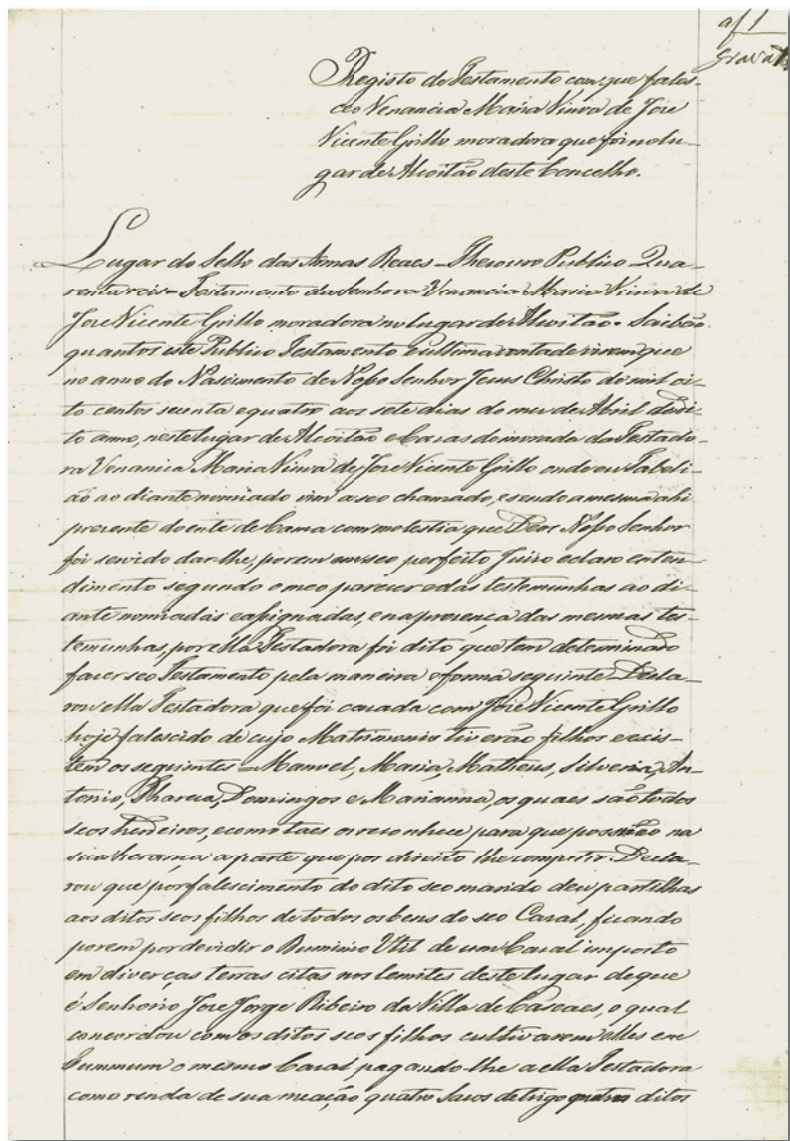 af 1
Gravat
Registo do Testamento com que fales-
ceo Venancia Maria Viuva de Jose
Vicente Grillo moradora que foi no lu-
gar de Alcoitão deste Concelho.
Lugar do Sello das Armas Reaes - Thesouro Publico Qua-
renta reis - Testamento da Senhora Venancia Maria Viuva de
Jose Vicente Grillo moradora no lugar de Alcoitão. Saibão
quantos este Publico Testamento e ultima vontade virem que
no anno do Nascimento de Nosso Senhor Jesus Christo de mil oi-
to centos secenta e quatro aos sete dias do mez de Abril do di-
to anno, neste lugar de Alcoitão e Casas de morada da Testado-
ra Venancia Maria Viuva de Jose Vicente Grillo onde eu Tabeli-
ão ao diante nomiado vim a seo chamado, e sendo a mesma ahi
prezente doente de Cama com molestia que Deos Nosso Senhor
foi servido dar-lhe, porem em seo perfeito Juizo e claro enten-
dimento segundo o meo parecer e das testemunhas ao di-
ante nomiadas e assignadas, e na prezença das mesmas tes-
temunhas, por ella Testadora foi dito que tem determinado
fazer seo Testamento pela maneira e forma seguinte - Decla-
rou ella Testadora que foi cazada com Jose Vicente Grillo
hoje falescido de cujo Matrimonio tiverão filhos e exis-
tem os seguintes = Manoel, Maria, Matheus, Silveria, An-
tonio, Tharcia, Domingos e Marianna, os quaes são todos
seos herdeiros, e como taes os reconhece para que possão na
sua herança a parte que por direito lhe competir. Decla-
rou que por falescimento do dito seo marido deu partilhas
aos ditos seos filhos de todos os bens do seo Cazal, ficando
porem por devidir o Duminio Util de um Cazal imposto
em diverças terras citas nos lemites deste lugar de que
é Senhorio Jose Jorge Ribeiro da Villa de Cascaes, o qual
concordou com os ditos seos filhos cultivarem elles em
Cummum o mesmo Cazal pagando-lhe a ella Testadora
como renda de sua meação quatro sacos de trigo quatro ditos